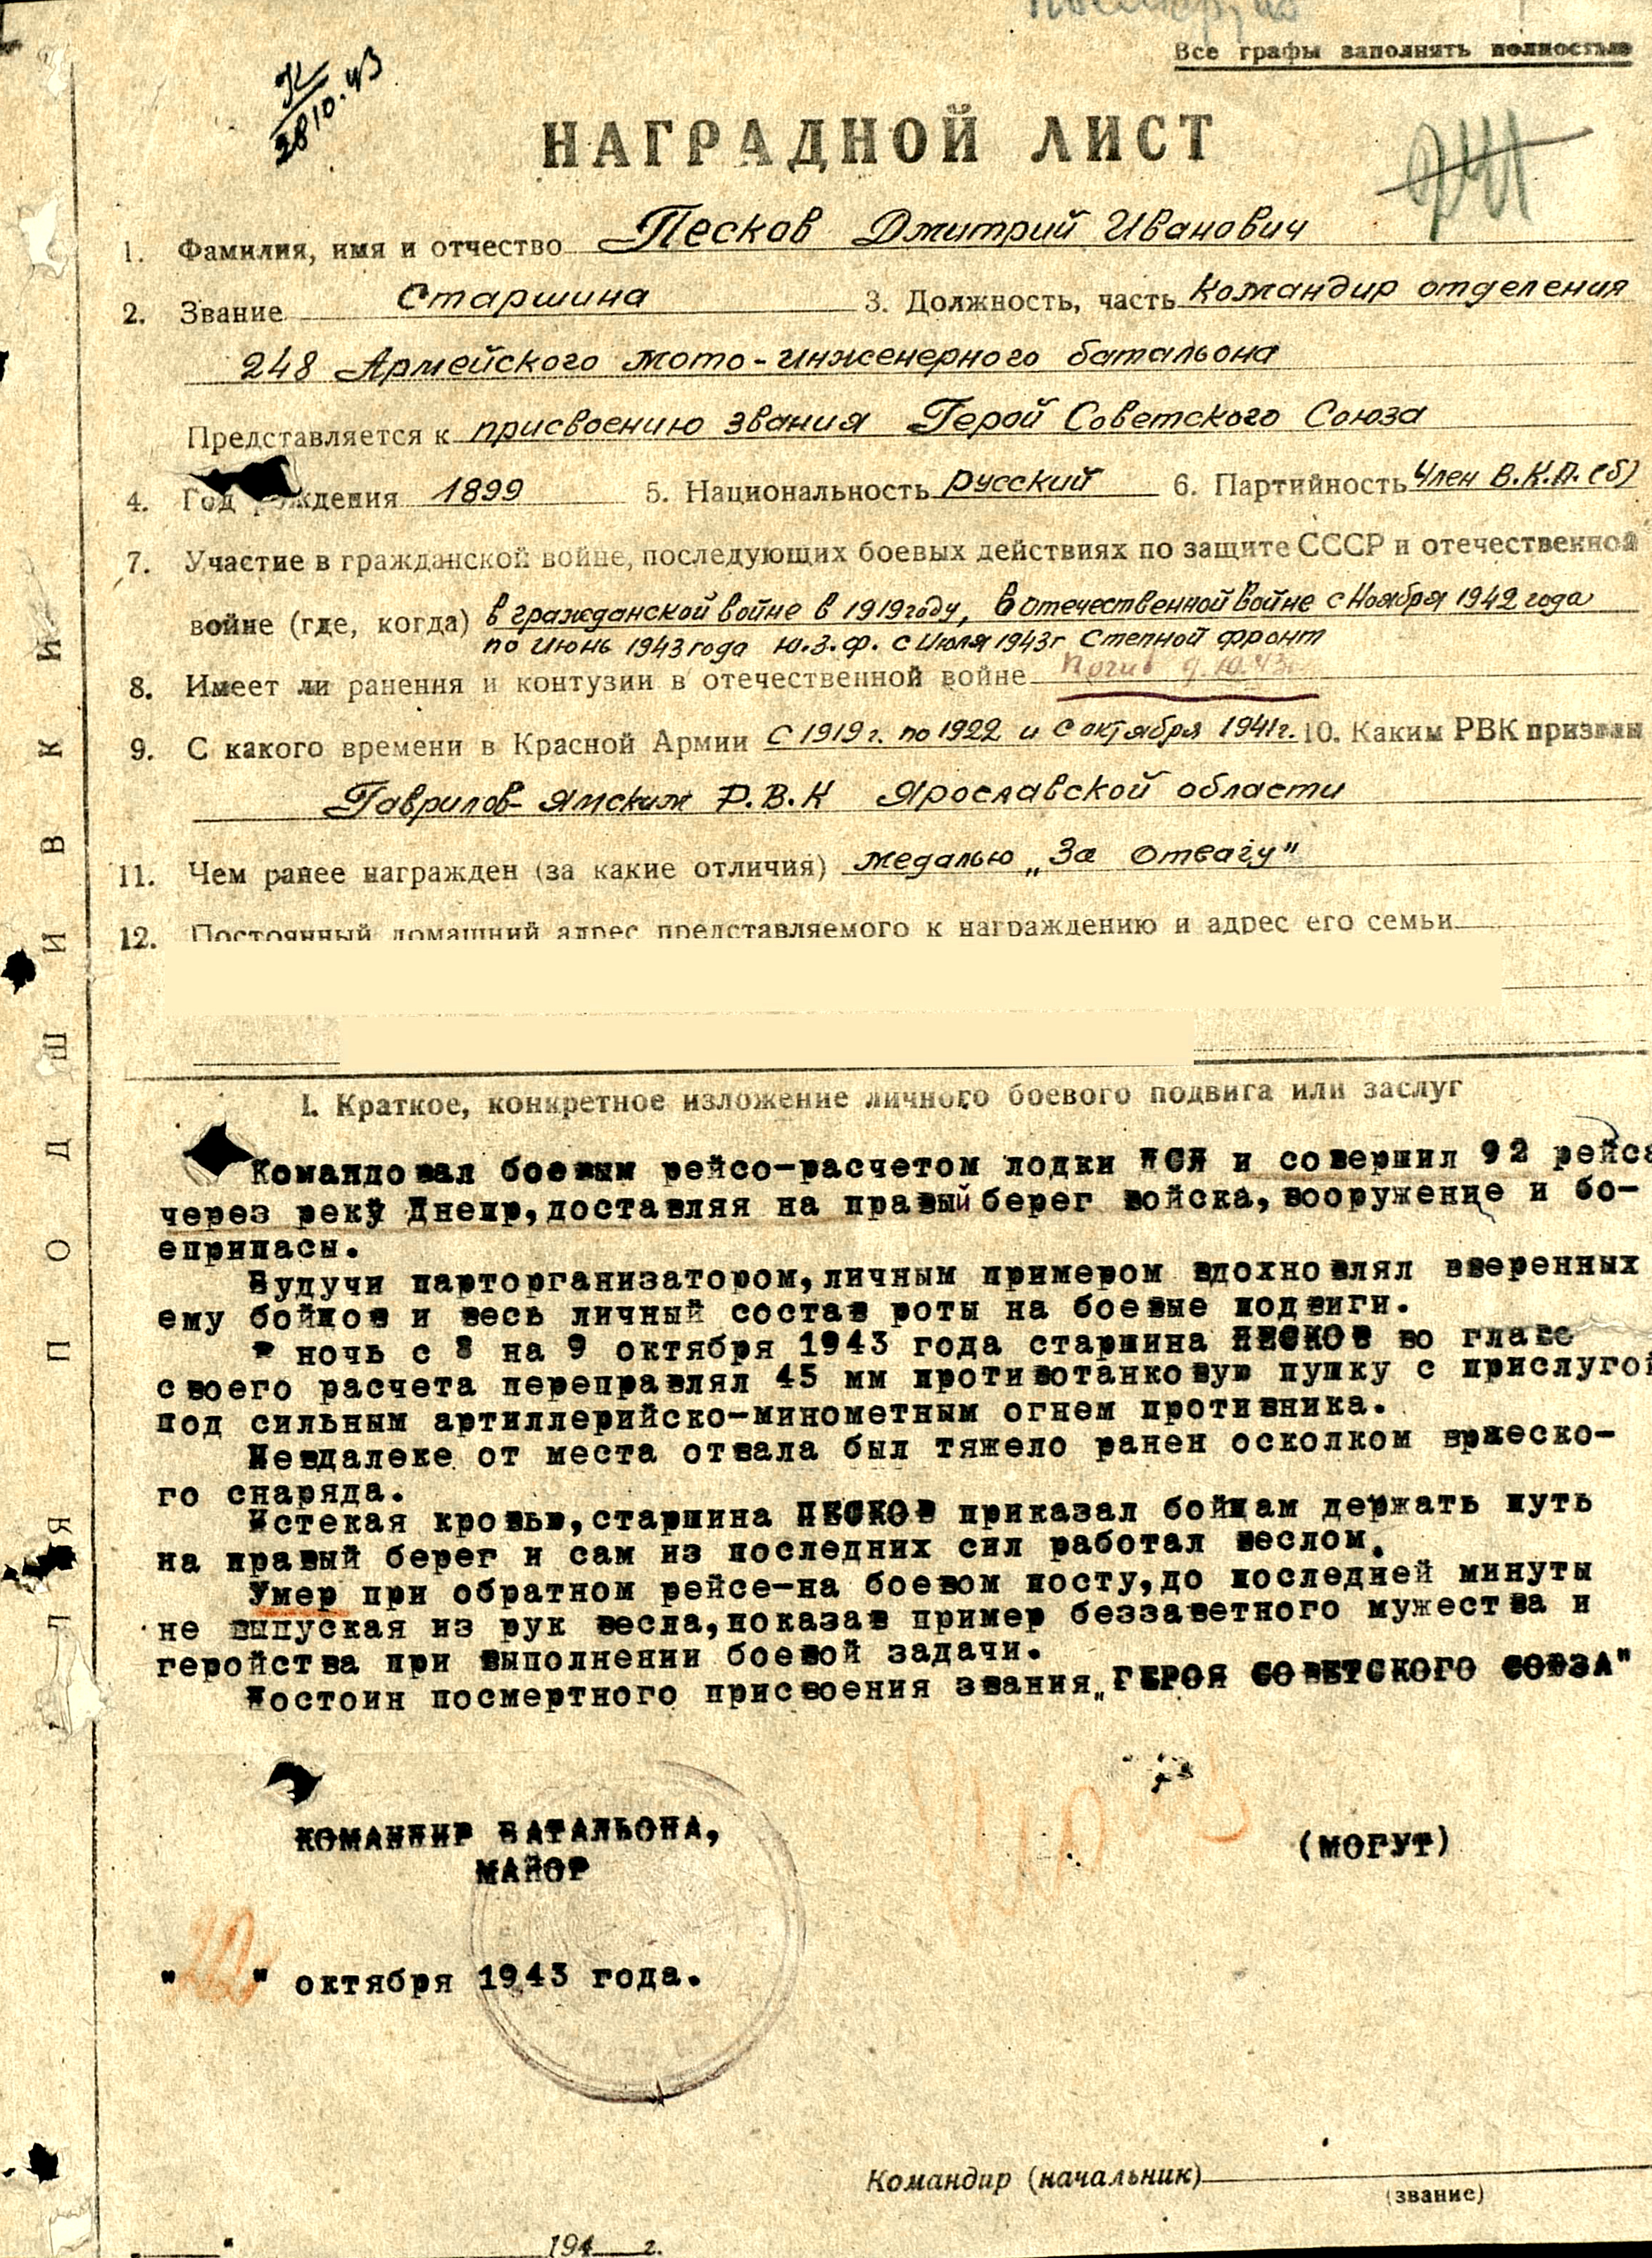 Все графы заполнять полностью
28 10.43
НАГРАДНОЙ ЛИСТ
241
1. Фамилия, имя и отчество Песков Дмитрий Иванович
2. Звание Старшина 3. Должность, часть Командир отделения
248 Армейского мото-инженерного батальона
Представляется к присвоению звания Герой Советского Союза
4. Год рождения 1899 5. Национальность русский 6. Партийность Член В.К.П.(б)
7. Участие в гражданской войне, последующих боевых действиях по защите СССР и отечественной
войне (где, когда) в гражданской войне в 1919 году, в отечественной войне с Ноября 1942 года
по Июнь 1943 года Ю.З.Ф. с Июля 1943г Степной фронт
8. Имеет ли ранения и контузии в отечественной войне Погиб 9.10.43г
9. С какого времени в Красной Армии С 1919 г. по 1922 и с октября 1941 г. 10. Каким РВК призван
Гаврилов-Ямским Р.В.К Ярославской области
11. Чем ранее награжден (за какие отличия) медалью „За Отвагу"
12. Постоянный домашний адрес представляемого к награждению и адрес его семьи
I. Краткое, конкретное изложение личного боевого подвига или заслуг
Командовал боевым рейсо-расчетом лодки ДСЛ и совершил 92 рейса
через реку Днепр, доставляя на правый берег войска, вооружение и бо-
еприпасы.
Будучи парторганизатором, личным примером вдохновлял вверенных
ему бойцов и весь личный состав роты на боевые подвиги.
В ночь с 8 на 9 октября 1943 года старшина ПЕСКОВ во главе
своего расчета переправлял 45 мм противотанковую пушку с прислугой
под сильным артиллерийско-минометным огнем противника.
Невдалеке от места отвала был тяжело ранен осколком вржеско-
го снаряда.
Истекая кровью, старшина ПЕСКОВ приказал бойцам держать путь
на правый берег и сам из последних сил работал веслом.
Умер при обратном рейсе-на боевом посту, до последней минуты
не выпуская из рук весла, показав пример беззаветного мужества и
геройства при выполнении боевой задачи.
Достоин посмертного присвоения звания „ГЕРОЯ СОВЕТСКОГО СОЮЗА"
КОМАНДИР БАТАЛЬОНА,
МАЙОР
(МОГУТ)
"20" октября 1943 года.
Командир (начальник)
(звание)
194 г.
ДЛЯ ПОДШИВКИ